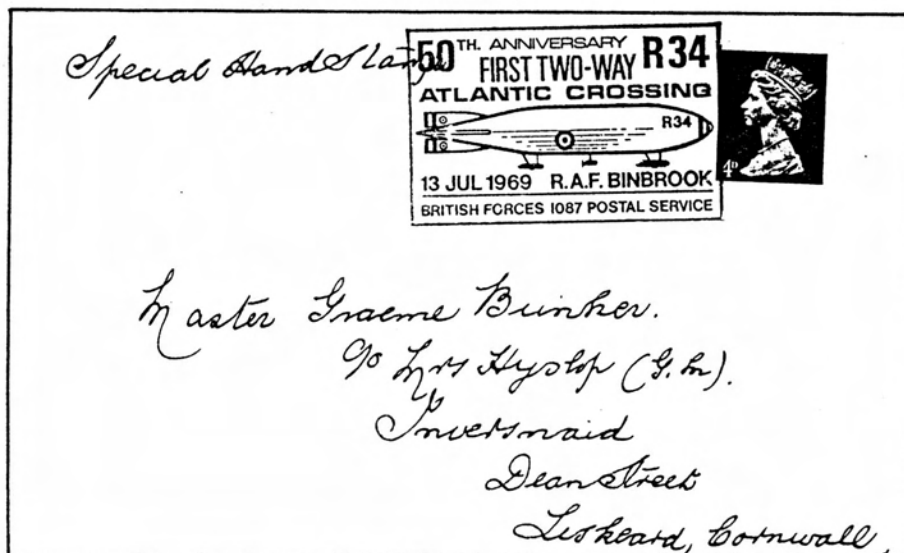 Special Hand Stamp
50TH. ANNIVERSARY
FIRST TWO-WAY R34
ATLANTIC CROSSING
R34
13 JUL 1969 R.A.F. BINBROOK
BRITISH FORCES 1087 POSTAL SERVICE
4D
Master Graeme Bunker.
c/o Mrs Hyslop (G.M).
Inversnaid
Dean Street
Liskeard, Cornwall,